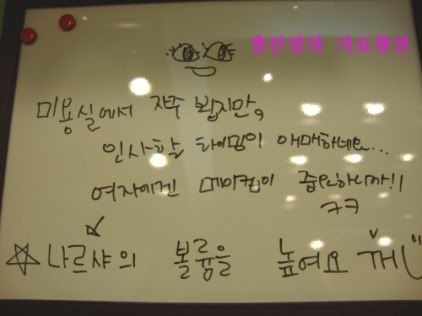 미용실에서 자주 뵙지만,
인사할 타이밍이 애매하네요...
여자에겐 메이컵이 중요하니까!!
ㅋㅋ
☆ 나르샤의 볼륨을 높여요